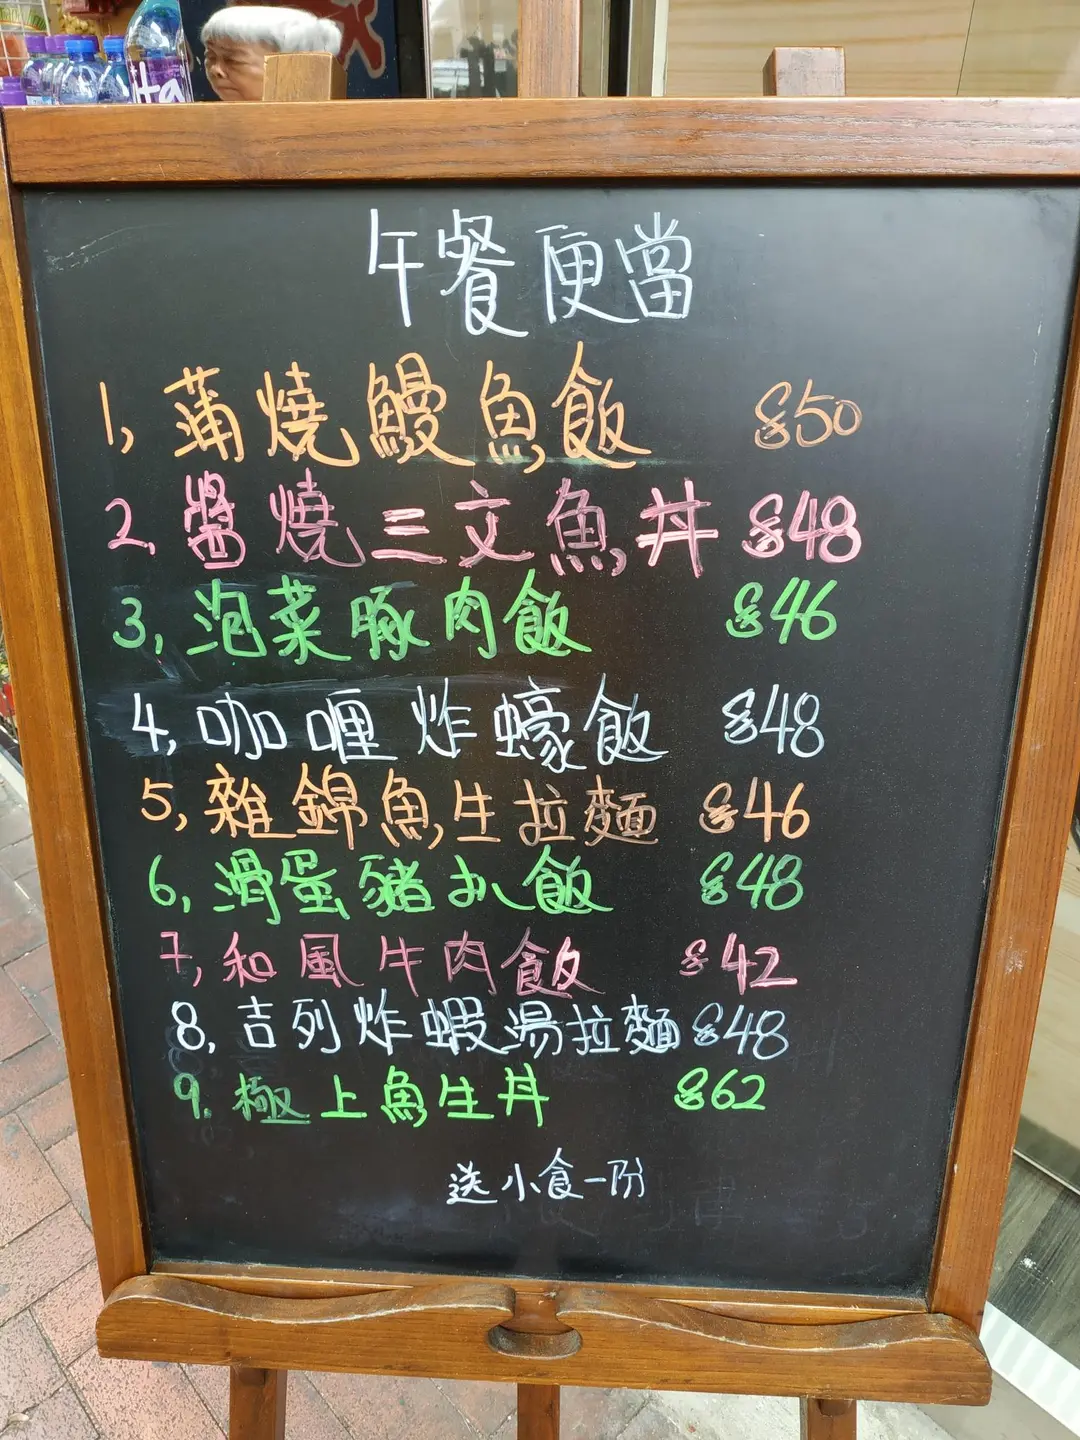 ita
午餐便當
1, 蒲燒鰻魚飯 $50
2, 醬燒三文魚丼 $48
3, 泡菜豚肉飯 $46
4, 咖喱炸蠔飯 $48
5, 雜錦魚生拉麵 $46
6, 滑蛋豬扒飯 $48
7, 和風牛肉飯 $42
8, 吉列炸蝦湯拉麵 $48
9. 極上魚生丼 $62
送小食一份